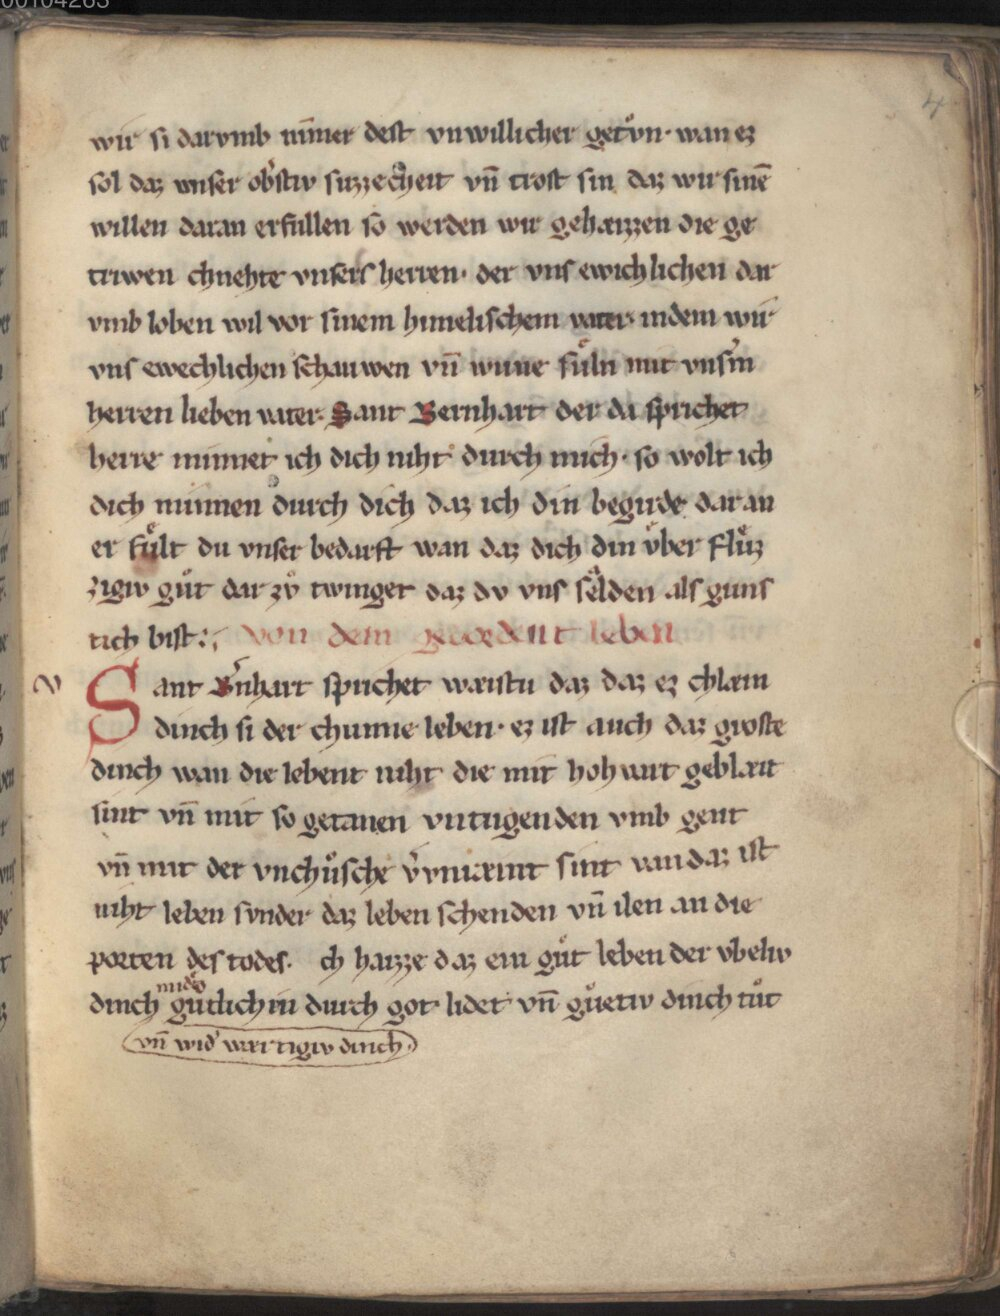 00104263
4
wir si darvmb nim̄er dest vnwillicher getvͦn · wan ez
sol daz vnser obˀstiv suzzecheit vn̄ trost sin daz wir sinē
willen daran erfullen so werden wir gehaizzen die ge
triwen chnehte vnsers herren · der vns ewichlichen dar
vmb loben wil vor sinem himelischem vater · indem wir
vns ewechlichen schauwen vn̄ wnne fuͤln mit vnsˀm
herren lieben vater · Sant Bernhart der da sprichet
herre minnet ich dich niht durch mich · so wolt ich
dich minnen durch dich daz ich din begirde daran
er fuͤlt du vnser bedarft wan daz dich din vͤber fluͤz
zigiv guͤt dar zvͦ twinget daz dv vns saͤlden als guns
tich bist · von dem leben
Sant Bˀnhart sprichet waistu daz daz ez chlain
dinch si der chunne leben · ez ist auch daz groste
dinch wan die lebent niht die mit hohvart geblait
sint vn̄ mit so getanen vntugenden vmb gent
vn̄ mit der vnchuͤsche vˀvnraint sint wan daz ist
niht leben svnder daz leben schenden vn̄ ilen an die
porten des todes · ch haizze daz ein guͤt leben der vbeliv
dinch guͤtlich in durch got lidet vn̄ guͤetiv dinch tuͤt
vn̄ widˀ wærtigiv dinch ·